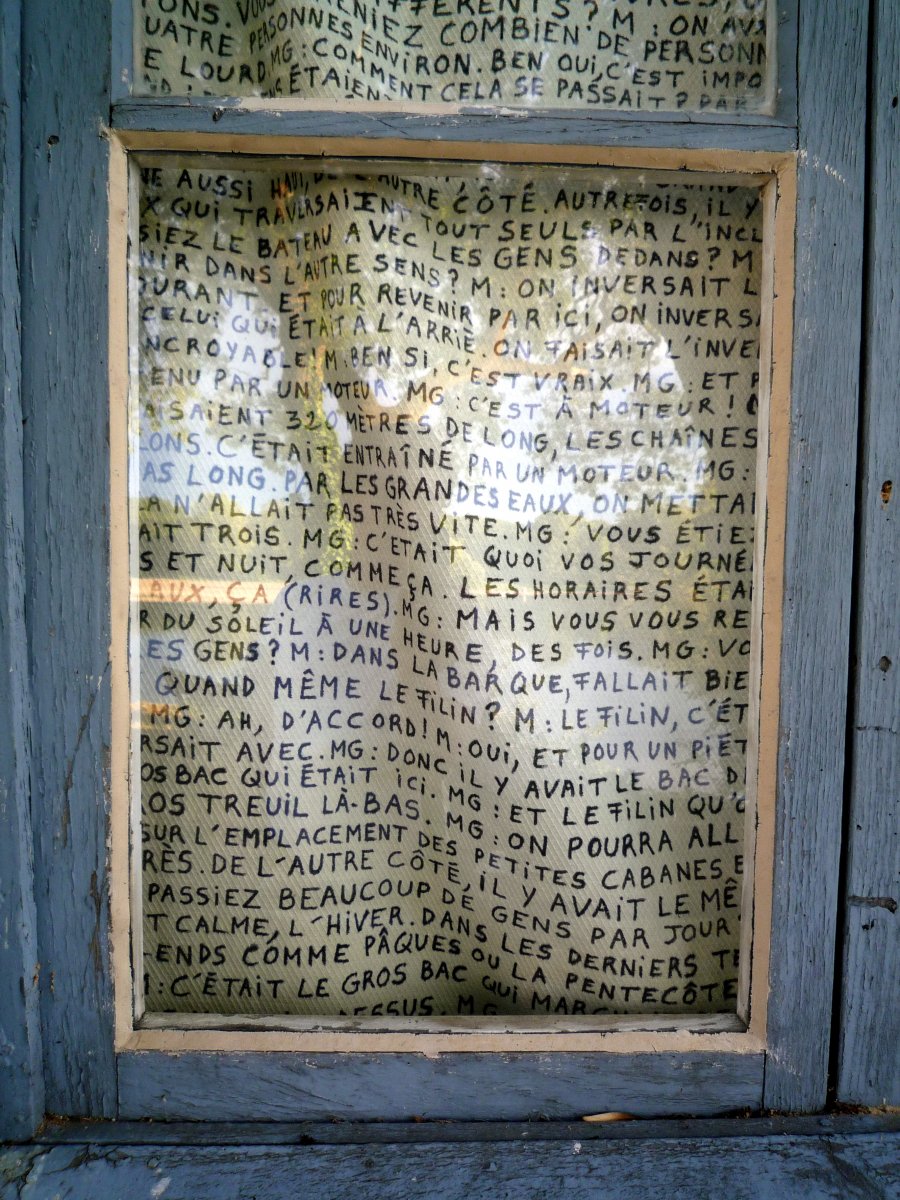 DIFFÉRENTS ? M : ON AV
TONS. VOUS PRENIEZ COMBIEN DE PERSONN
UATRE PERSONNES ENVIRON. BEN OUI, C'EST IMPO
E LOURD. MG : COMMENT CELA SE PASSAIT ? PAR
ÉTAIEN
NE AUSSI HAUT, DE L'AUTRE CÔTÉ. AUTREFOIS, IL Y
X QUI TRAVERSAIENT TOUT SEULS PAR L'INCL
SIEZ LE BATEAU AVEC LES GENS DEDANS ? M
NIR DANS L'AUTRE SENS ? M : ON INVERSAIT L
OURANT ET POUR REVENIR PAR ICI, ON INVERSA
CELUI QUI ÉTAIT À L'ARRIÈ. ON FAISAIT L'INVE
NCROYABLE ! M. BEN SI, C'EST VRAIX. MG : ET P
ENU PAR UN MOTEUR. MG : C'EST À MOTEUR !
AISAIENT 320 MÈTRES DE LONG, LES CHAÎNES
LONS. C'ÉTAIT ENTRAÎNÉ PAR UN MOTEUR. MG :
AS LONG. PAR LES GRANDES EAUX, ON METTAI
LA N'ALLAIT PAS TRÈS VITE. MG : VOUS ÉTIEZ
AIT TROIS. MG : C'ETAIT QUOI VOS JOURNÉ
S ET NUIT, COMME ÇA. LES HORAIRES ÉTA
AUX, ÇA (RIRES). MG : MAIS VOUS VOUS RE
R DU SOLEIL À UNE HEURE, DES FOIS. MG : VO
LES GENS ? M : DANS LA BARQUE, FALLAIT BIE
QUAND MÊME LE FILIN ? M : LE FILIN, C'ÉT
MG : AH, D'ACCORD ! M : OUI, ET POUR UN PIÉT
RSAIT AVEC. MG : DONC IL Y AVAIT LE BAC D
OS BAC QUI ÉTAIT ICI. MG : ET LE FILIN QU'
ROS TREUIL LÀ-BAS. MG : ON POURRA ALL
SUR L'EMPLACEMENT DES PETITES CABANES E
RÈS. DE L'AUTRE CÔTÉ, IL Y AVAIT LE MÊ
PASSIEZ BEAUCOUP DE GENS PAR JOUR
T CALME, L'HIVER. DANS LES DERNIERS TE
-ENDS COMME PÂQUES OU LA PENTECÔTE
M : C'ÉTAIT LE GROS BAC QUI MARCH
DESSUS. MG